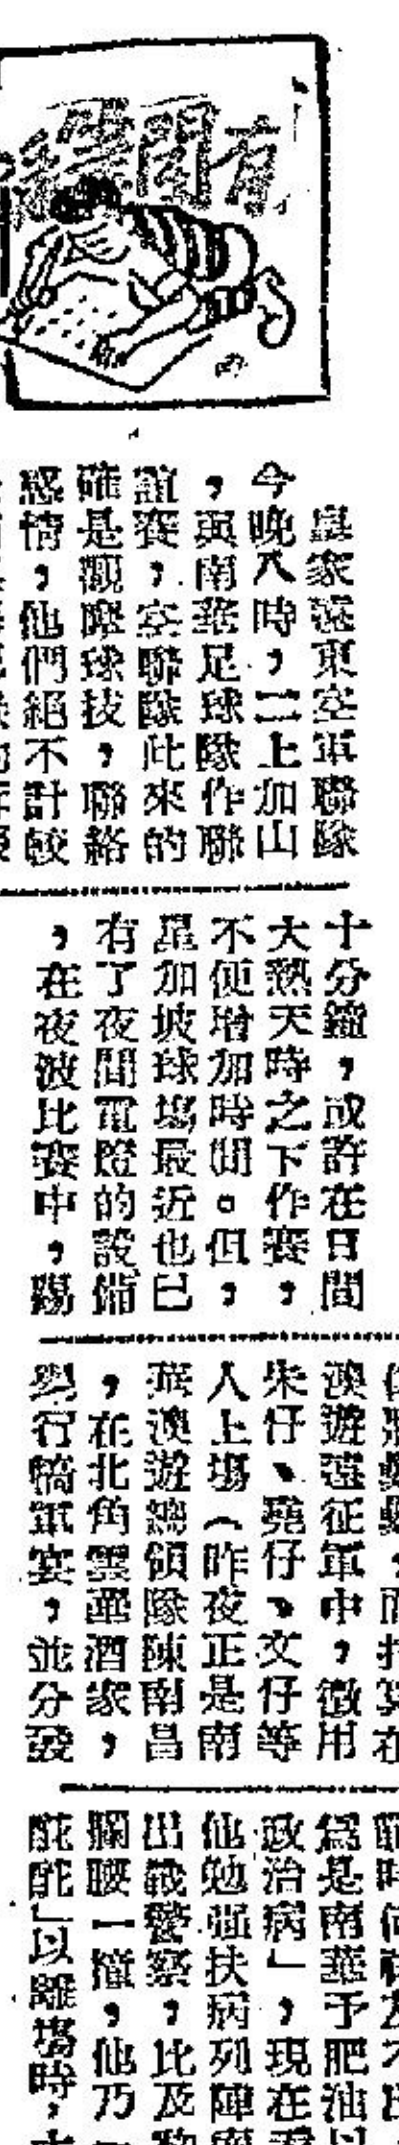 有聞
皇家遠東空軍聯隊
今晚八時，二上加山
，與南華足球隊作聯
誼賽，空聯隊此來的
確是觀摩球技，聯絡
感情，他們絕不計較
十分鐘，或許在日間
大熱天時之下作賽，
不便增加時間。但，
星加坡球場最近也已
有了夜間電燈的設備
，在夜波比賽中，踢
澳遊遠征軍中，徵用
朱仔、堯仔、文仔等
人上場（昨夜正是南
華澳遊總領隊陳南昌
，在北角雲華酒家，
舉行犒軍宴，並分發
為是南華予肥油以
政治病」，現在
他勉強扶病列陣
出戰警察，比及
攔腰一撞，他乃
酡酡」以離場時，